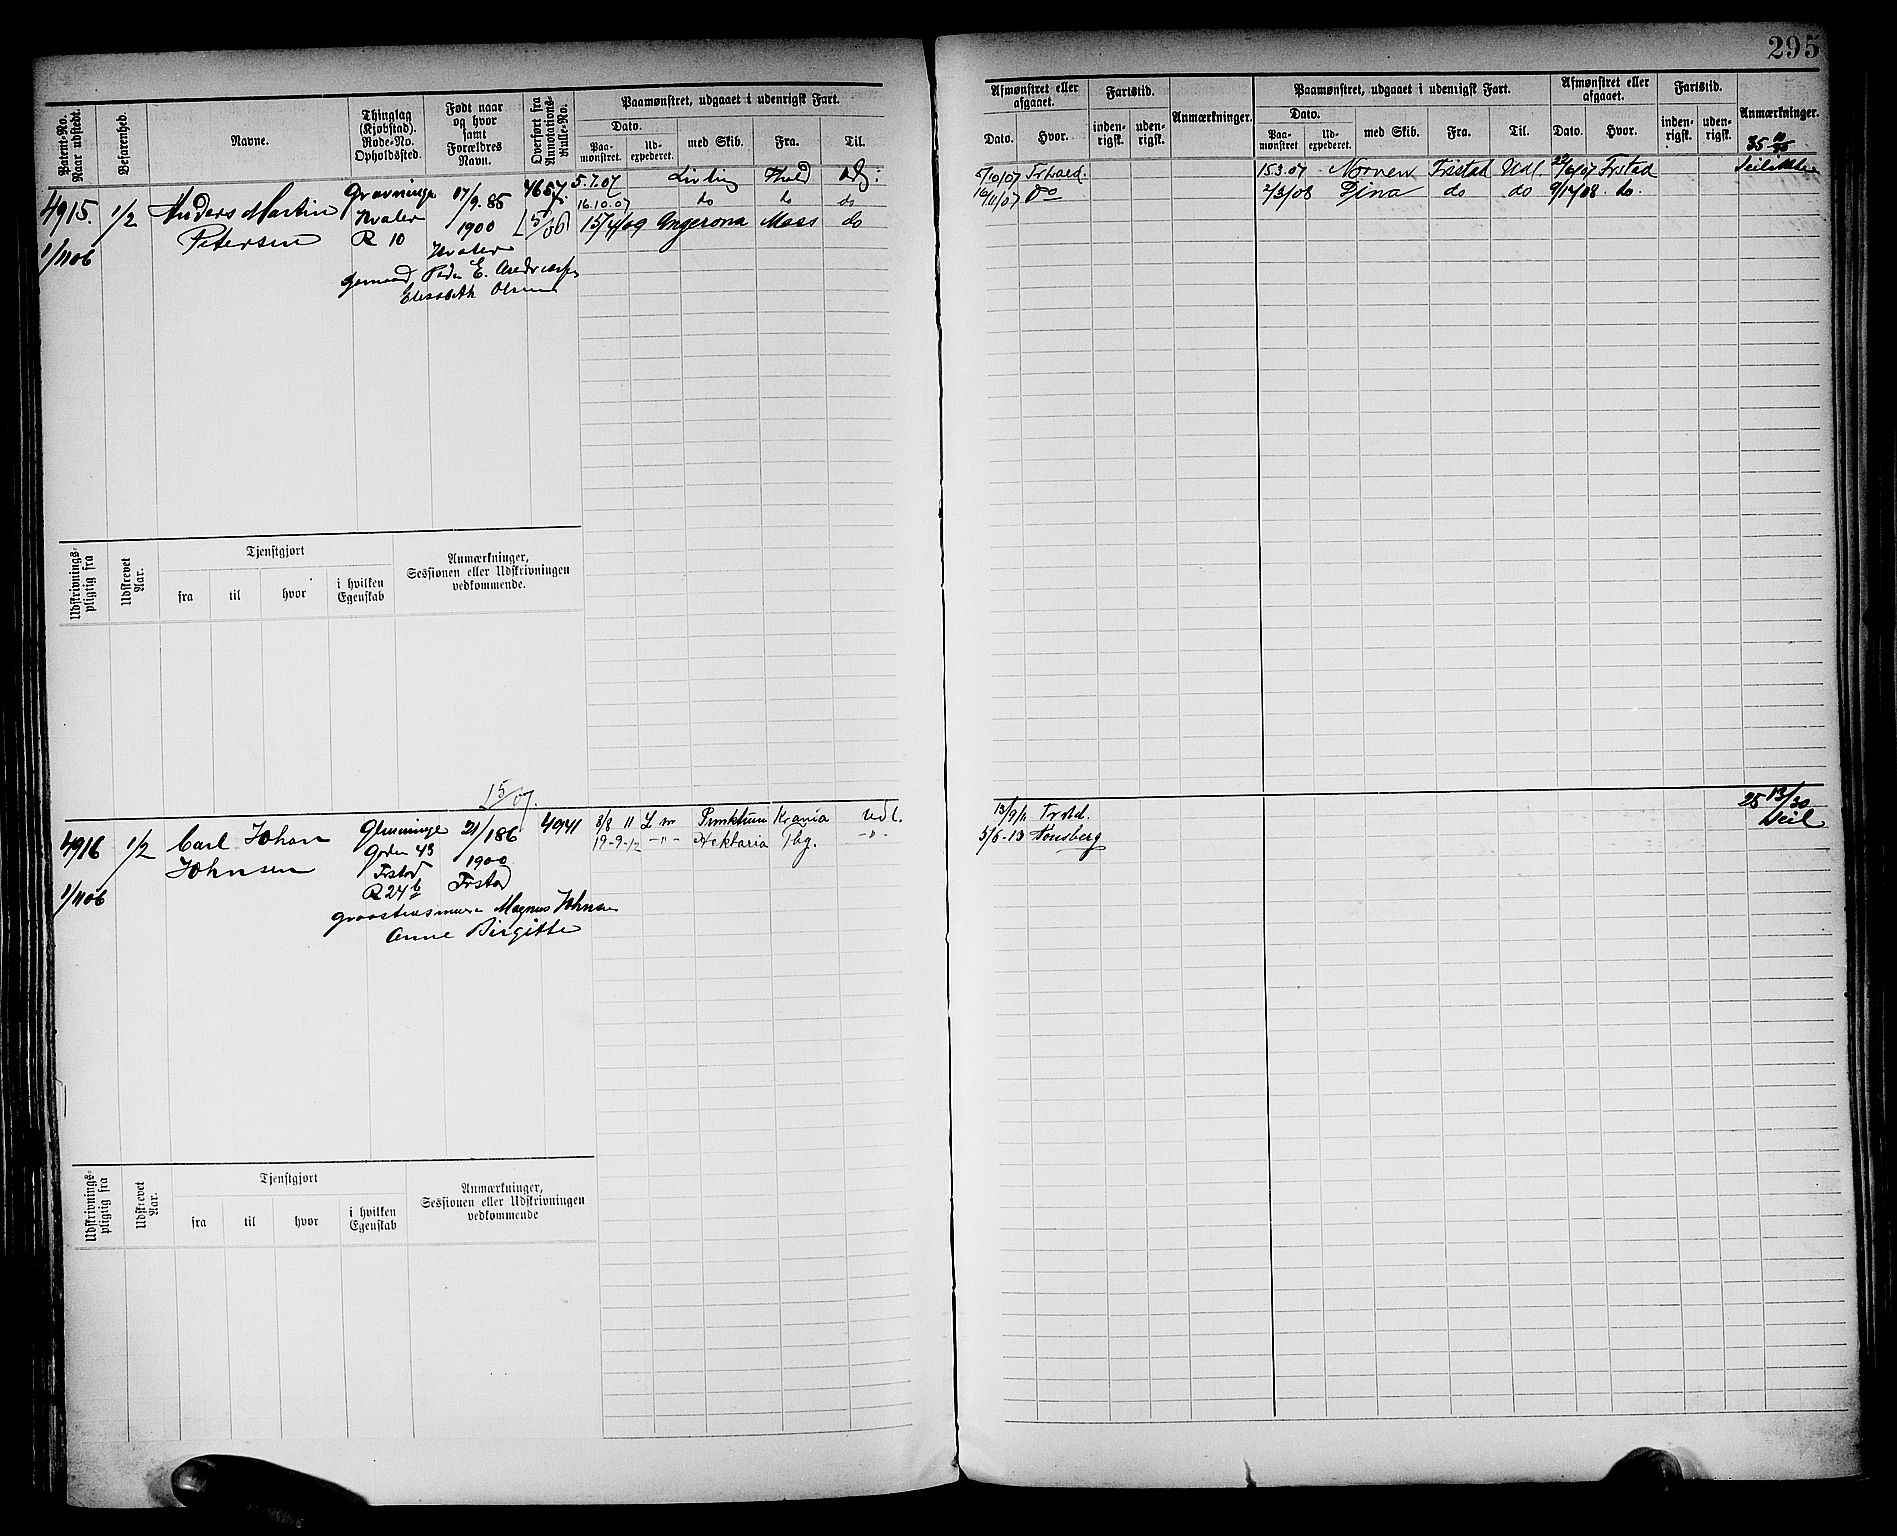 295
Patent-No. Naar udstedt.
Befarenhed.
Navne.
Thinglag (Kjøbstad). Rode-No. Opholdssted.
Født naar og hvor samt Forældres Navn.
Overført fra Annotations-Rulle-No.
Paamønstret, udgaaet i udenrigsk Fart.
Dato.
Paa-mønstret.
Ud-expederet.
med Skib.
Fra.
Til.
Afmønstret eller afgaaet.
Dato.
Hvor.
Fartstid.
inden-rigsk.
uden-rigsk.
Anmærkninger.
Paamønstret, udgaaet i udenrigsk Fart.
Dato.
Paa-mønstret
Ud-expederet.
med Skib.
Fra.
Til.
Afmønstret eller afgaaet.
Dato.
Hvor.
Fartstid.
inden-rigsk.
uden-rigsk.
Anmærkninger.
4915.
1/2
Anders Martin
Petersen
1/11 06
Hvaler
R 10
17/9.86
1900
Hvaler
Peder E.
Elisabeth Olsen
4657
5/06
5.7.07
16.10.07 do do do
15/4/09 Ingerona Moss do
5/10/07
10/11/07 Do
15.3.07 Norven Fristad Udl.
2/3/08 Djna do do 9/12/08 do.
Udskrivnings-pligtig fra
Udskrevet Aar.
Tjenstgjort
fra
til
hvor
i hvilken Egenskab
Anmærkninger, Sessionen eller Udskrivningen vedkommende.
15/07.
4916
1/2
Carl Johan
Johnsen
1/11 06
Glemminge
Goden 43
Frstad
R 24 b
21/1 86
1900
Frstad
Magnus Johnsen
Anne Birgitte
4941
3/8 11 L m Punktum Krania Udl.
19-9-12 -"- Nektaria Tbg. -"-
13/9/11 Frstd.
5/6-13 Tønsberg
25 13/20
Seil
Udskrivnings-pligtig fra
Udskrevet Aar.
Tjenstgjort
fra
til
hvor
i hvilken Egenskab
Anmærkninger, Sessionen eller Udskrivningen vedkommende